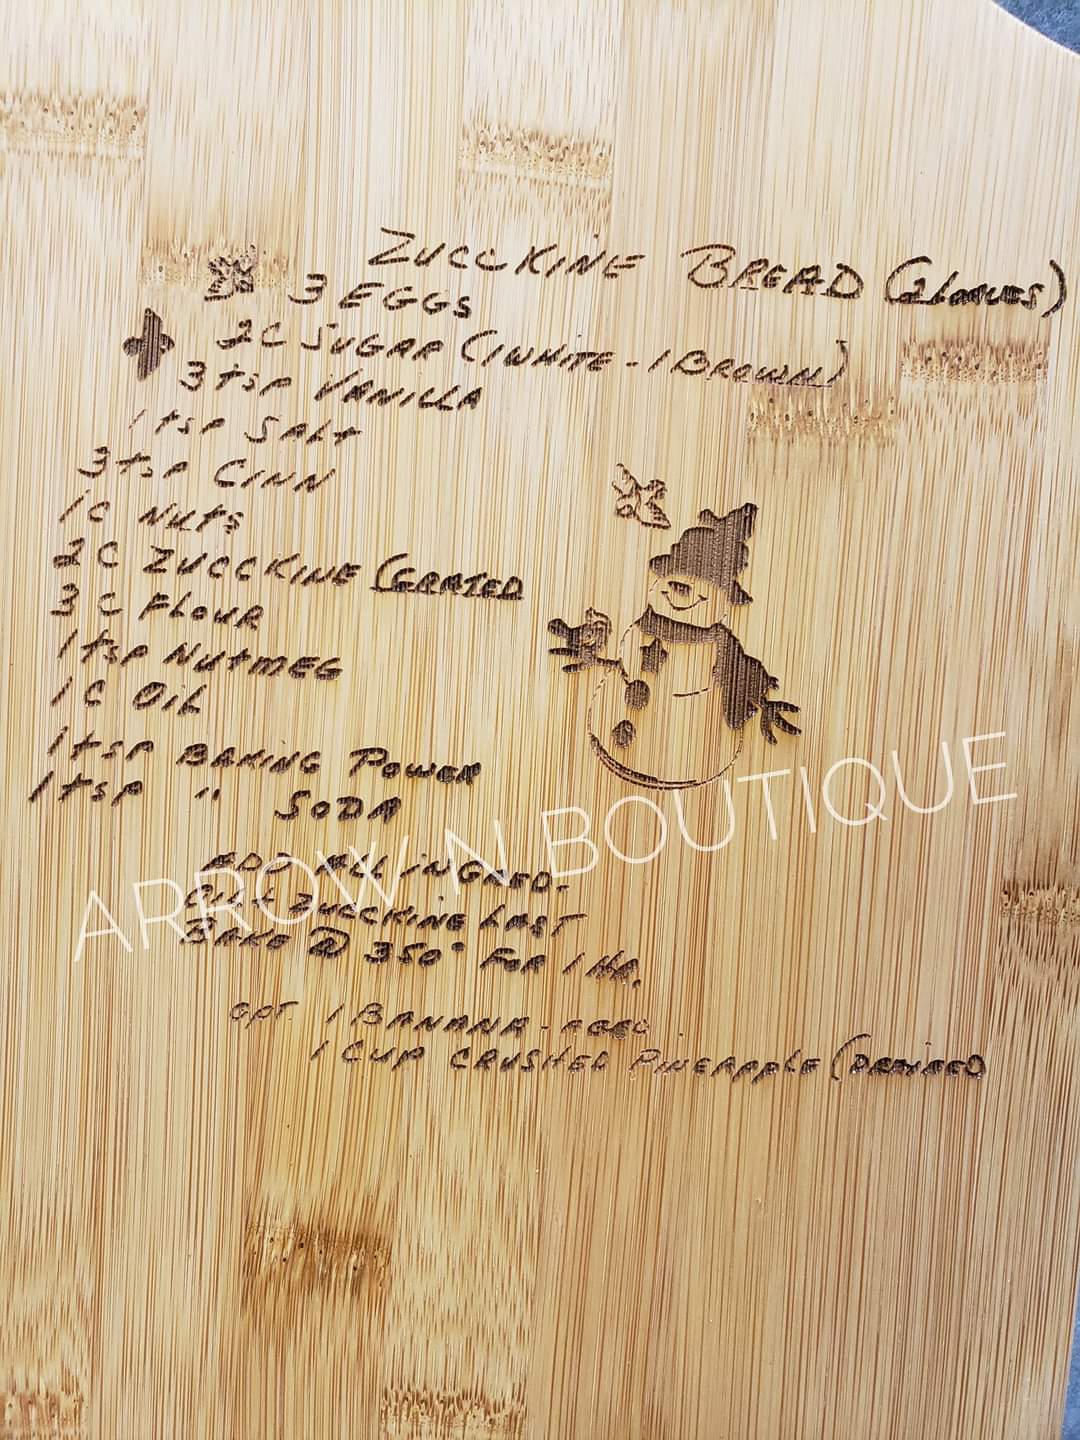 ZUCCKINE BREAD (2 loaves)
3 EGGS
2C SUGAR (1 WHITE - 1 BROWN)
3 tsp VANILLA
1 tsp SALT
3 tsp CINN
1C NUTS
2C ZUCCKINE (GRATED
3C FLOUR
1 tsp NUTMEG
1C OIL
1 tsp BAKING POWER
1 tsp " SODA
ADD ALL INGRED.
ZUCCKINE LAST
BAKE @ 350° FOR 1 HR.
OPT. 1 BANANA -
1 CUP CRUSHED PINEAPPLE (DRAINED
ARROW N BOUTIQUE